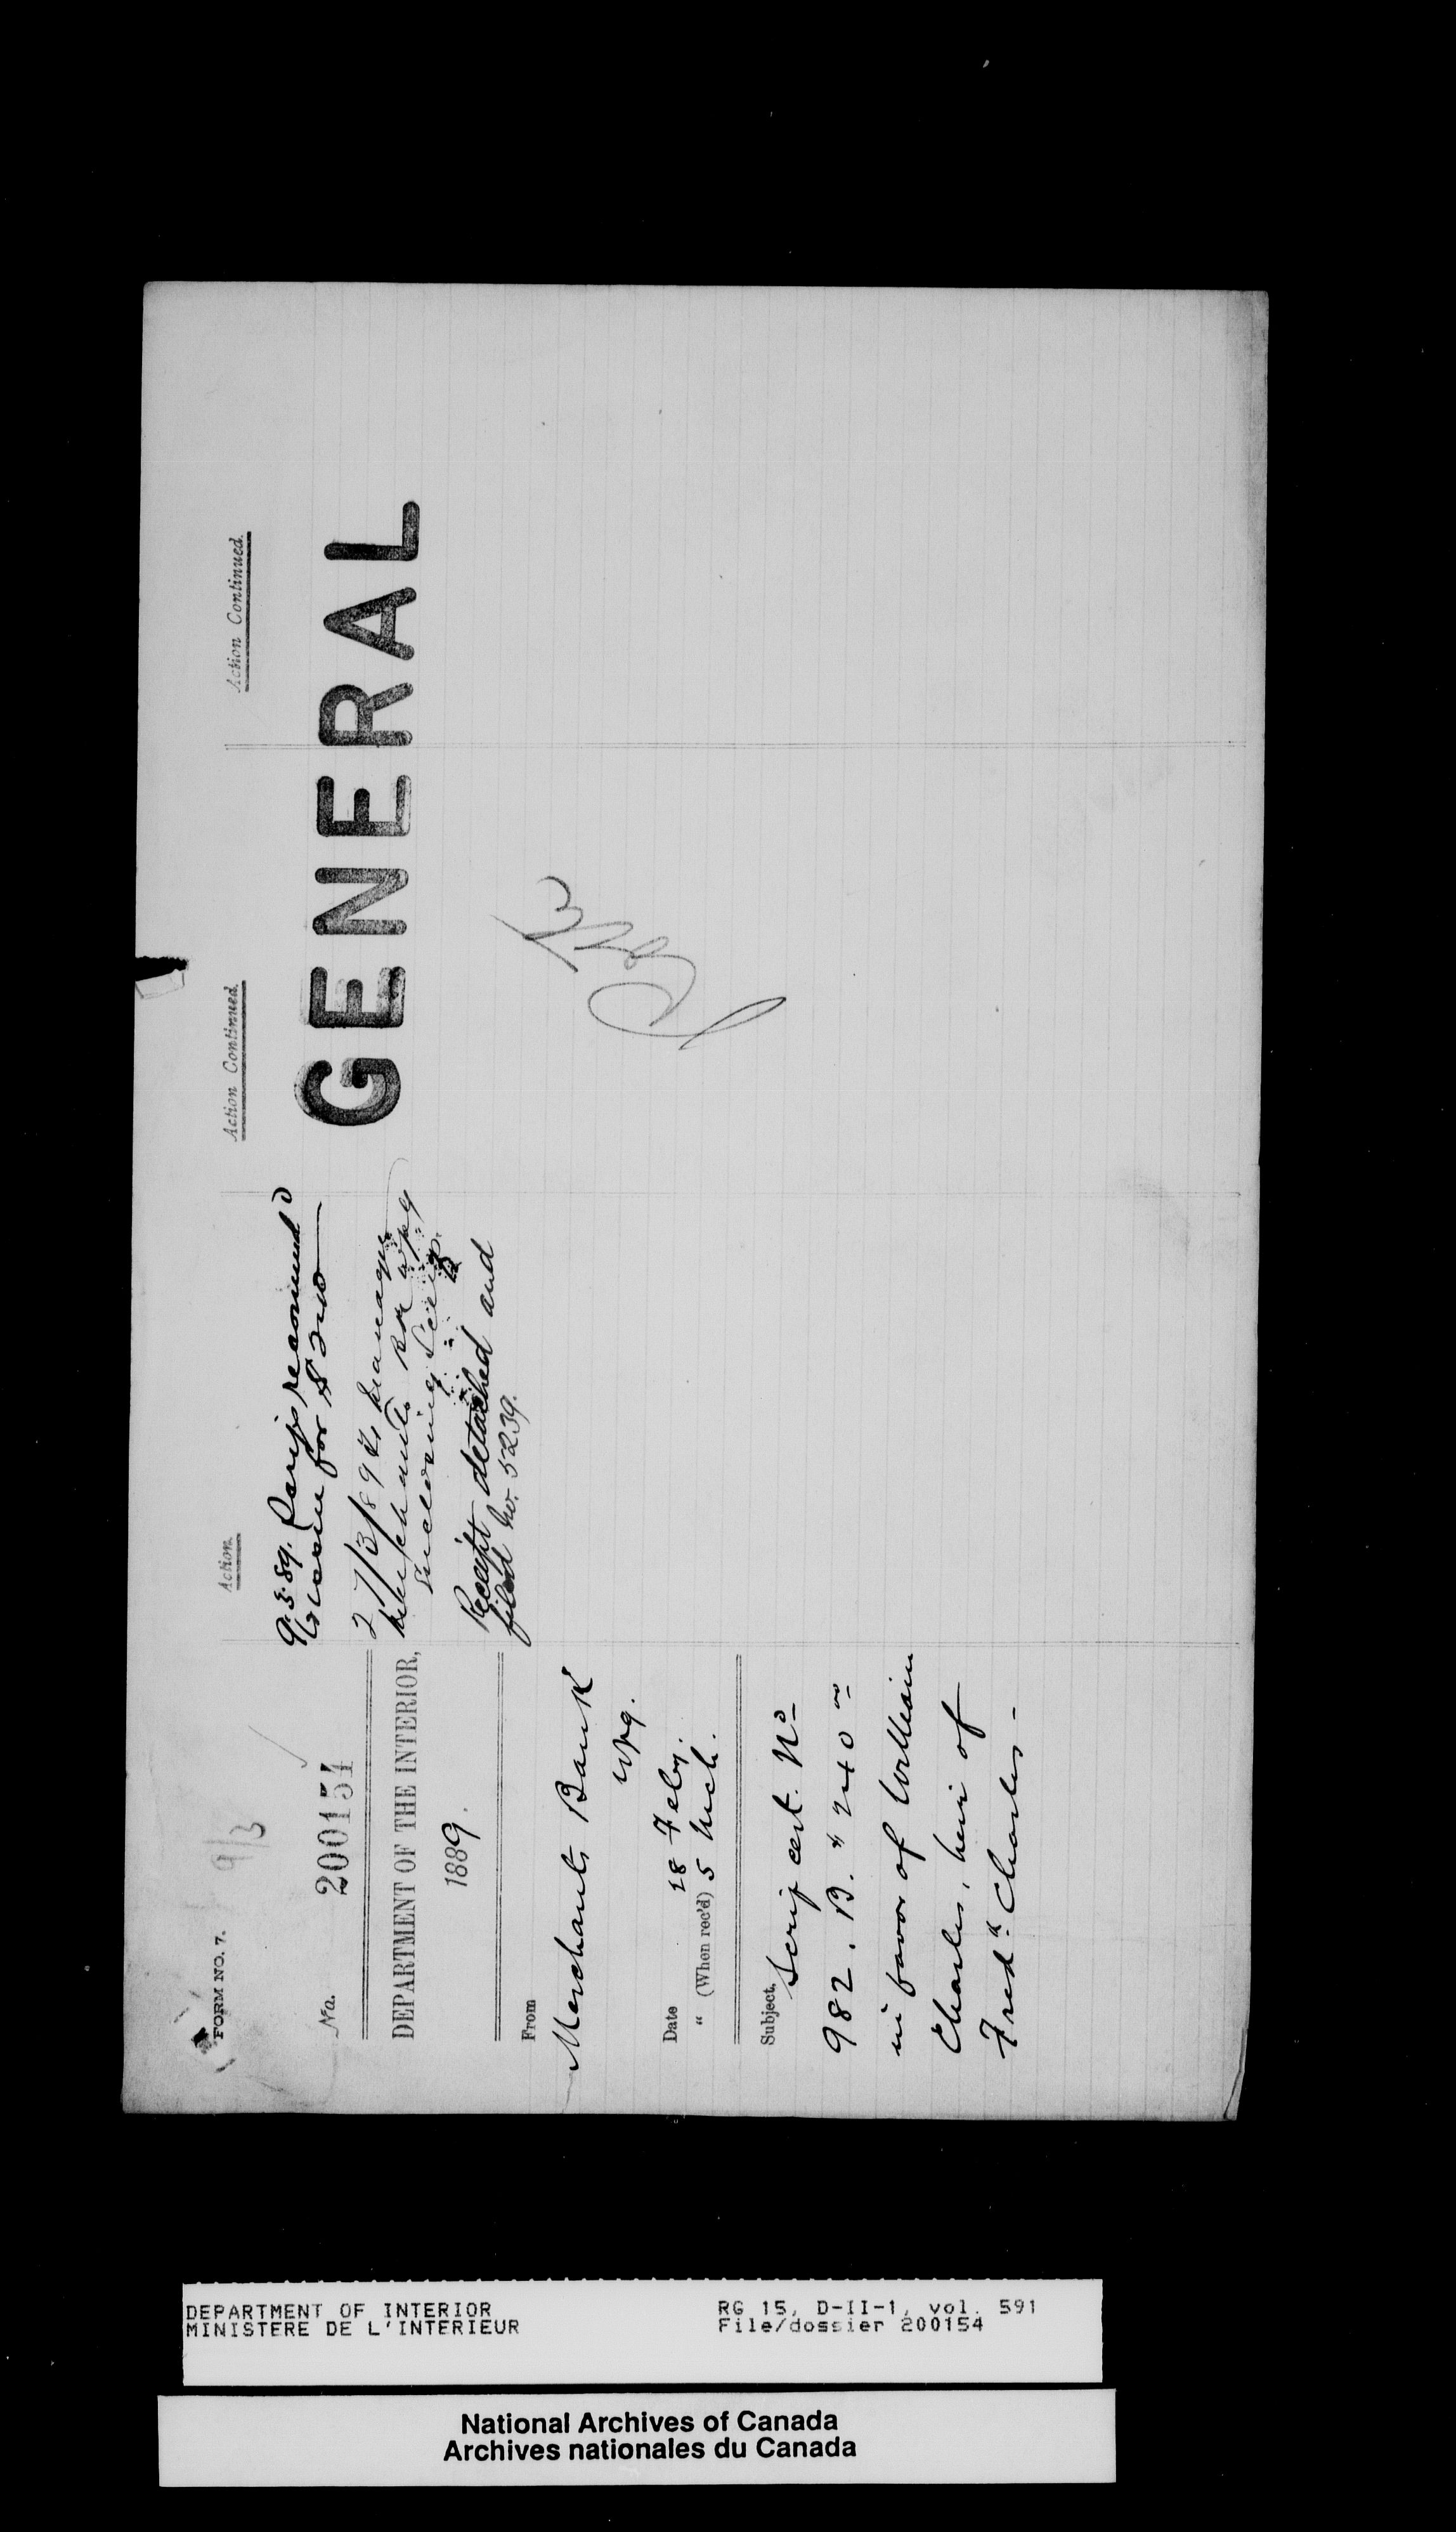 FORM NO. 7.
9/3
No. 200154
DEPARTMENT OF THE INTERIOR,
1889.
From
Merchants Bank
Wpg.
Date 18 Feby.
" (When rec'd) 5 Mch.
Subject,
Scrip cert. No
982. B. $240 00
in favor of William
Charles, heir of
Fredk Charles -
Action.
9.3.89. Scrip
for $240
27/3/89 L manager
Merchants Bk Wpg
Enclosing Scrip
Receipt detached and
filed No. 5239.
Action Continued.
GENERAL
Action Continued.
DEPARTMENT OF INTERIOR
MINISTERE DE L'INTERIEUR
RG 15, D-II-1, vol. 591
File/dossier 200154
National Archives of Canada
Archives nationales du Canada